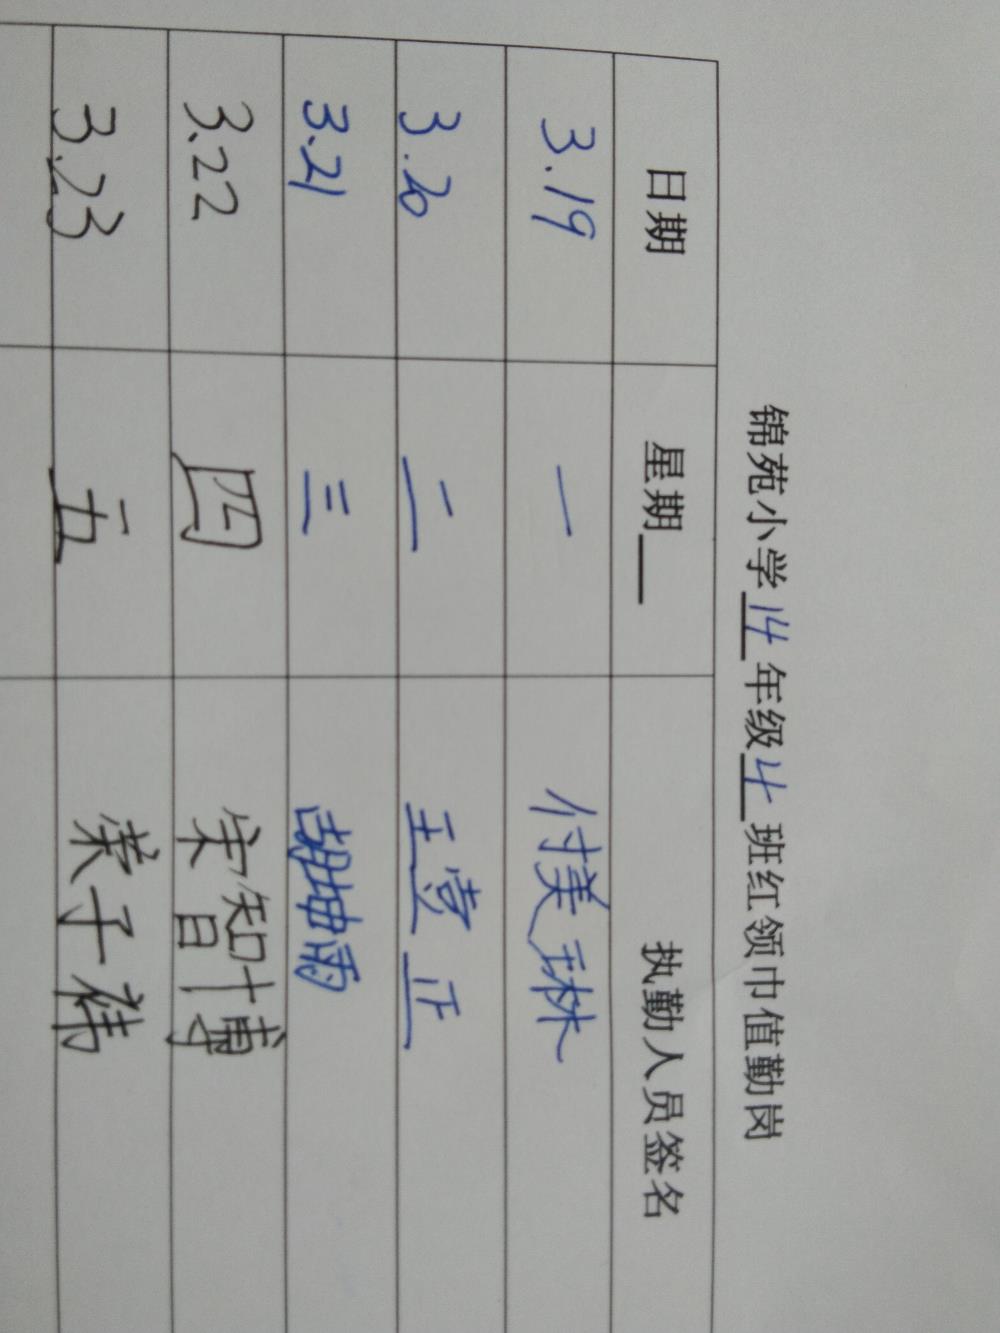 锦苑小学14年级4班红领巾值勤岗
日期 星期__ 执勤人员签名
3.19 一 付美琳
3.20 二 王壹正
3.21 三 胡坤雨
3.22 四 宋智博
3.23 五 荣子祎